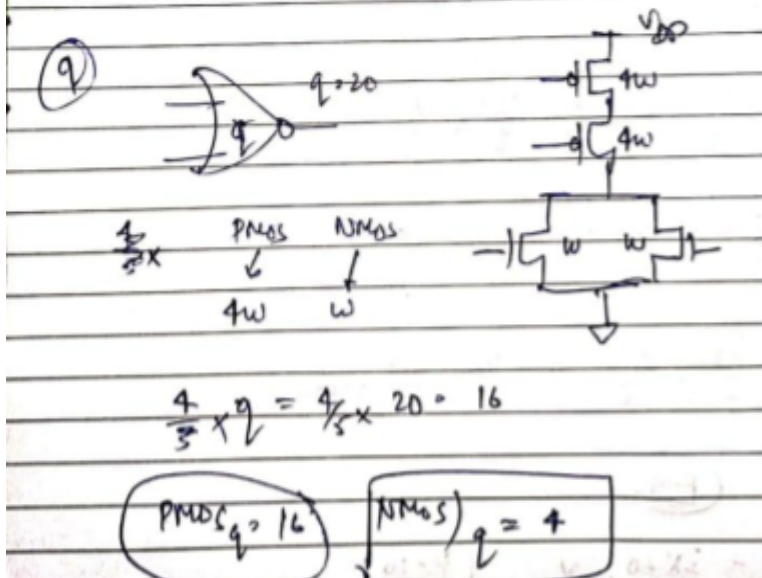 q
q = 20
VDD
4W
4W
q
4/5 ×
PMOS NMOS
4W W
W W
4/5 × q = 4/5 × 20 = 16
PMOS q = 16
NMOS) q = 4